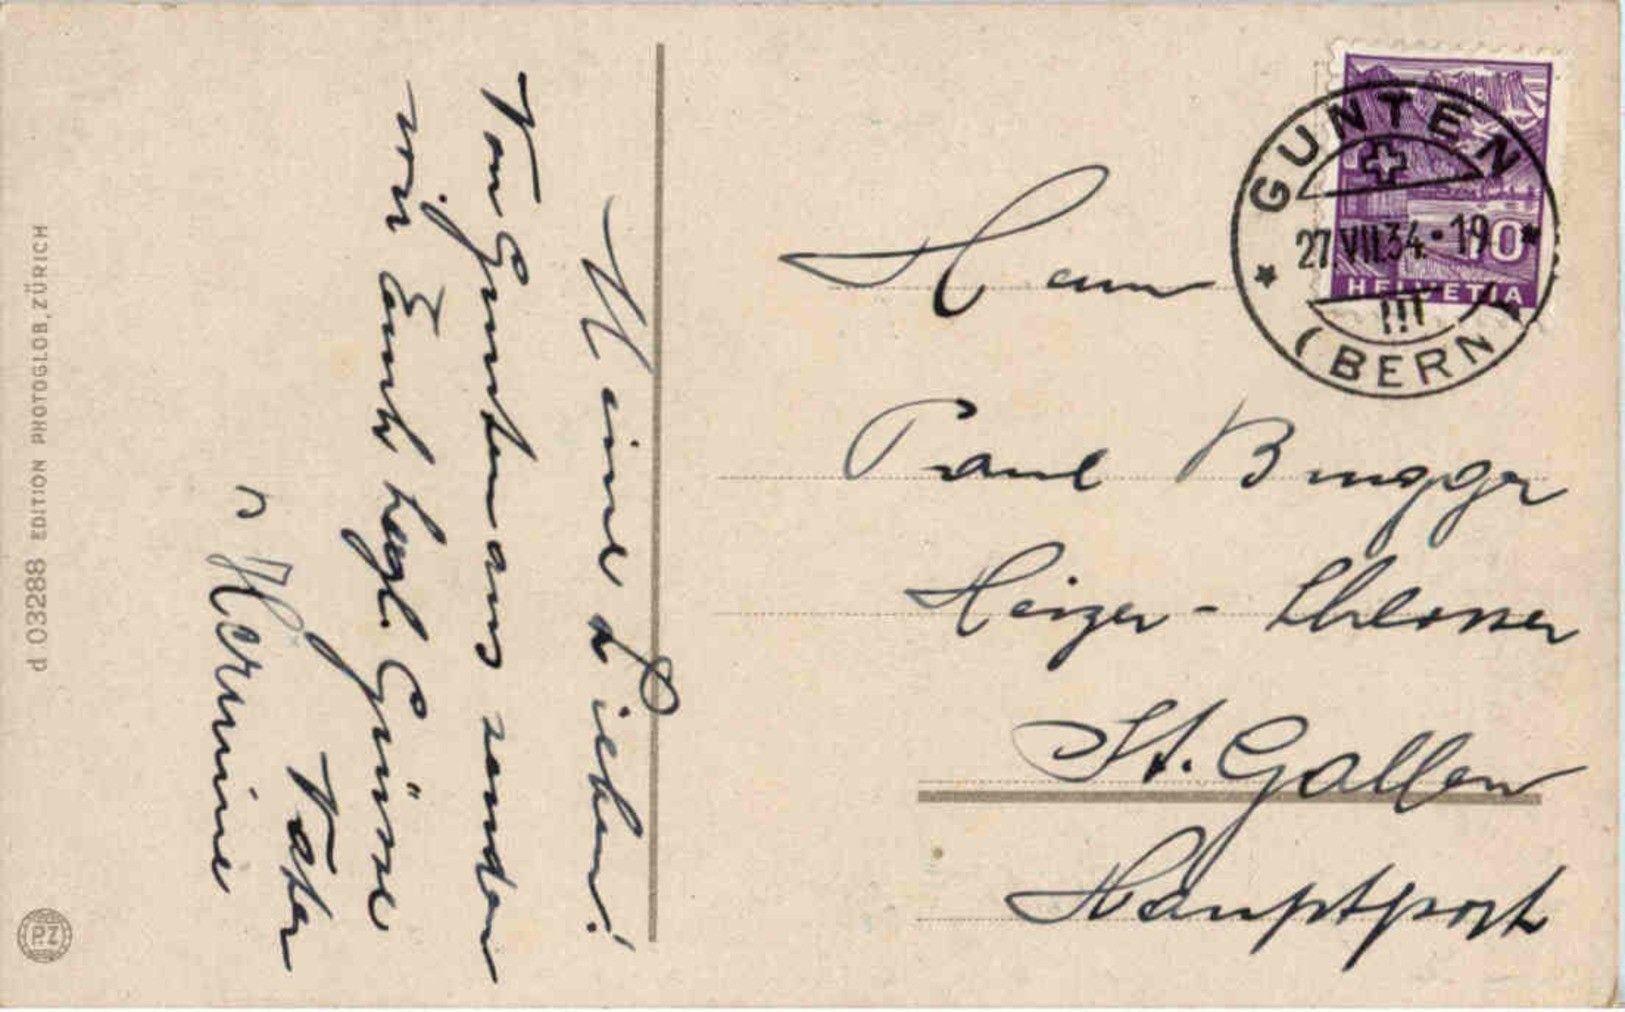 Meine Lieben!
Von Gunten aus senden
wir Euch herzl. Grüsse
Vater
u Hermine
Herrn
Paul Brugger
Heizer - Schlosser
St. Gallen
Hauptpost
GUNTEN
27.VII.34.-19
(BERN)
10
HELVETIA
d 03288 EDITION PHOTOGLOB, ZÜRICH
PZ